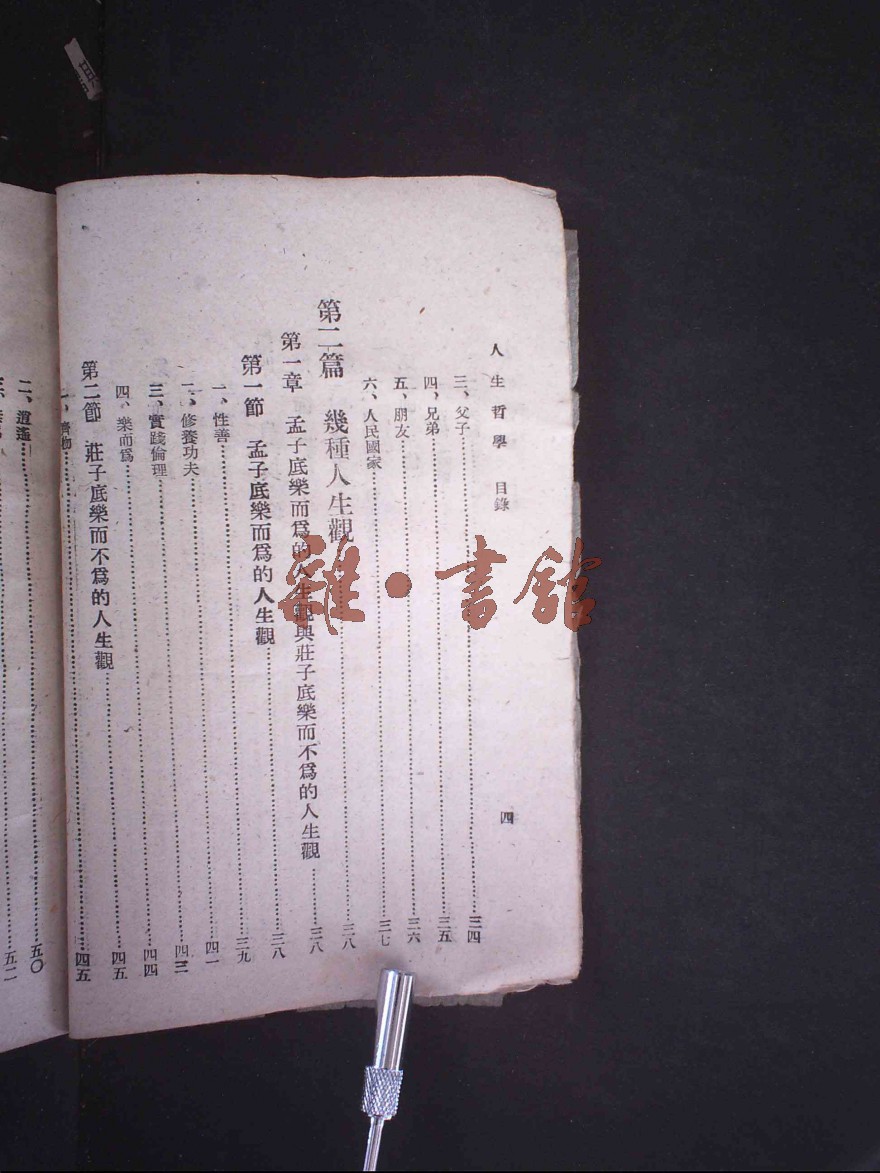 人生哲學 目錄 四
三、父子 三四
四、兄弟 三五
五、朋友 三六
六、人民國家 三七
第二篇 幾種人生觀 三八
第一章 孟子底樂而爲的人生觀與莊子底樂而不爲的人生觀 三八
第一節 孟子底樂而爲的人生觀 三八
一、性善 三九
二、修養功夫 四一
三、實踐倫理 四三
四、樂而爲 四四
第二節 莊子底樂而不爲的人生觀 四五
一、齊物 四五
二、逍遙 五〇
五二
雜·書館